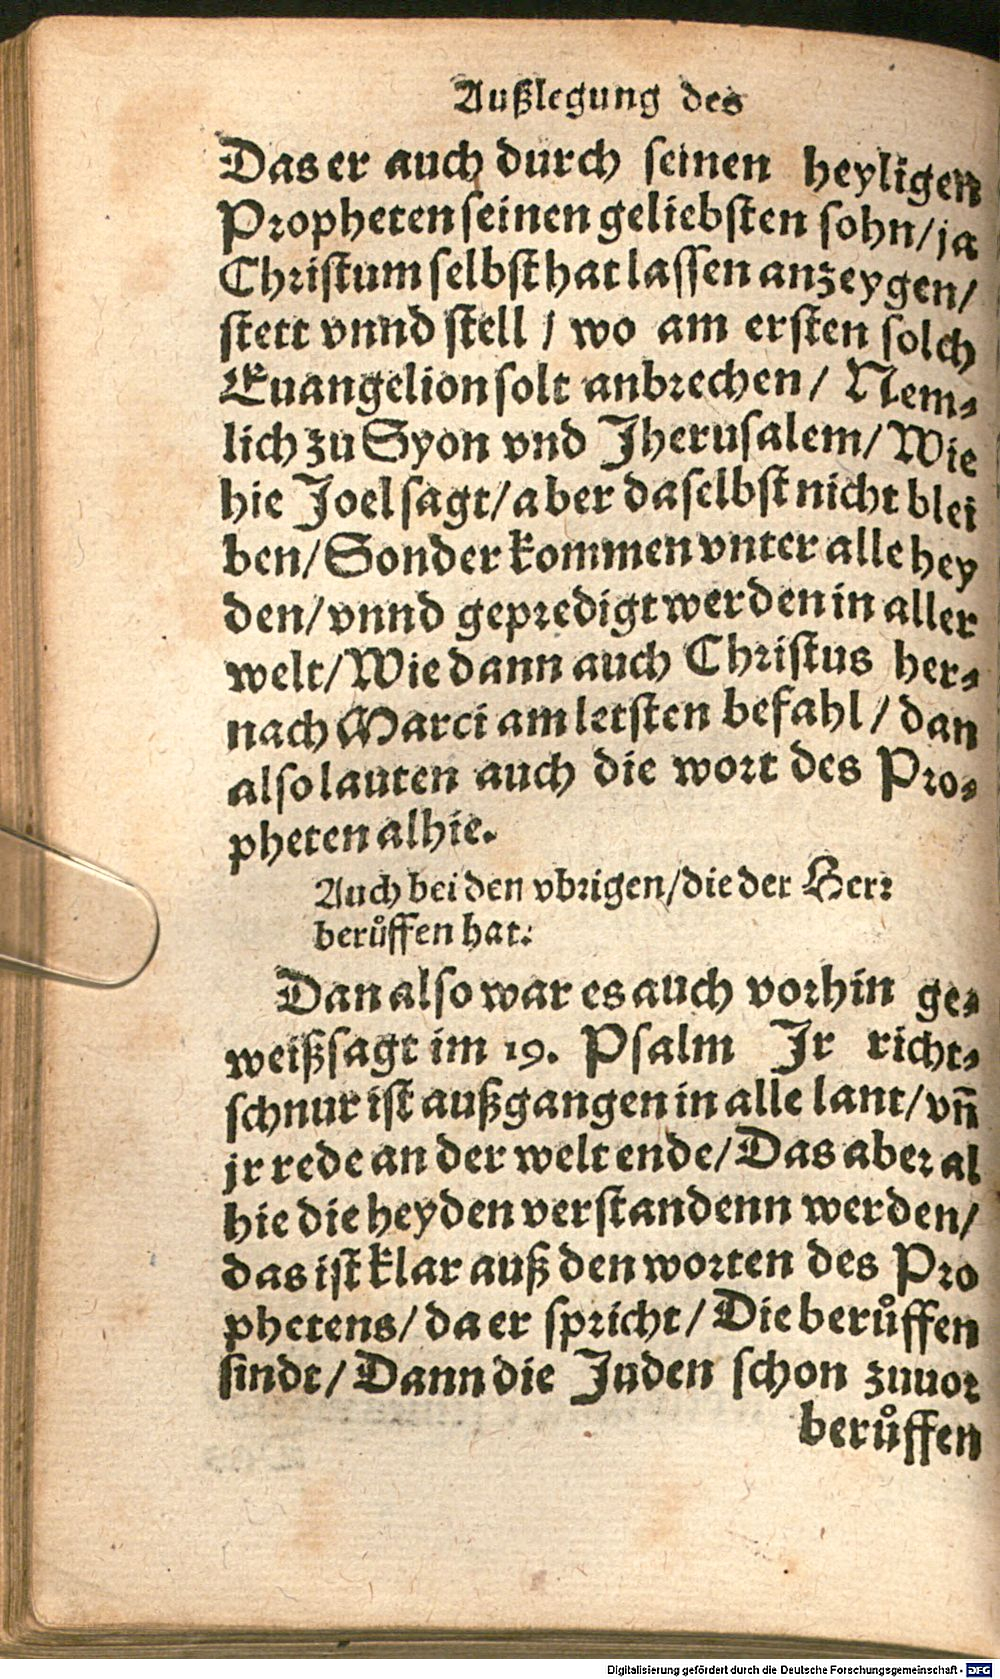 Außlegung des
Das er auch durch seinen heyligen
Propheten seinen geliebsten sohn/ja
Christum selbst hat lassen anzeygen/
stett vnnd stell / wo am ersten solch
Euangelion solt anbrechen/ Nem-
lich zu Syon vnd Jherusalem/ Wie
hie Joel sagt/ aber daselbst nicht blei
ben/ Sonder kommen vnter alle hey
den/ vnnd gepredigt werden in aller
welt/ Wie dann auch Christus her-
nach Marci am letsten befahl / dan
also lauten auch die wort des Pro-
pheten alhie.
Auch bei den vbrigen/die der Herr
berůffen hat.
Dan also war es auch vorhin ge-
weißsagt im 19. Psalm Jr richt-
schnur ist außgangen in alle lant/ vn̄
jr rede an der welt ende/ Das aber al
hie die heyden verstandenn werden/
das ist klar auß den worten des Pro
phetens/ da er spricht/ Die berůffen
sindt/ Dann die Juden schon zuuor
berůffen
Digitalisierung gefördert durch die Deutsche Forschungsgemeinschaft - DFG